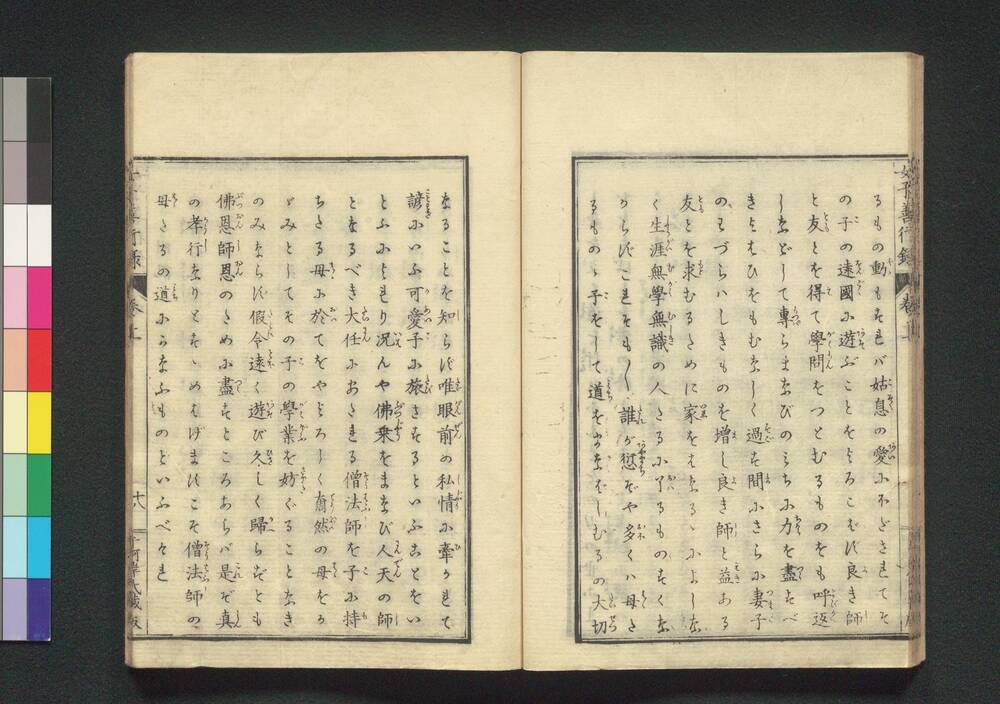 女子善行録 巻上
るもの動もすれバ姑息の愛にほどされてそ
の子の遠國に遊ぶことをよろこばず良き師
と友とを得て學問をつとむるものをも呼返
しなどして專らまなびのミちに力を盡すべ
きよはひをもむなしく過す間にさらに妻子
のわづらハしきものを増し良き師と益ある
友とを求むるために家をはなるゝによしな
く生涯無學無識の人さるに了るものすくな
からずこれそも〳〵誰が愆ぞや多くハ母た
るものゝ子をして道をまなばしむるの大切
なることを知らず唯眼前の私情に牽かれて
諺にいふ可愛子に旅させるといふことをい
とふによもり况んや佛乗をまなび人天の師
となるべき大任にあたれる僧法師を子に持
ちたる母に於てをやよろしく肅然の母をか
ゞみとしてその子の學業を妨ぐることなき
のみならず假令遠く遊び久しく歸らずとも
佛恩師恩のために盡すところあらバ是ぞ真
の孝行なりとすゝめはげますこそ僧法師の
母たるの道にかなふものといふべけれ
女子善行録 巻上 十八